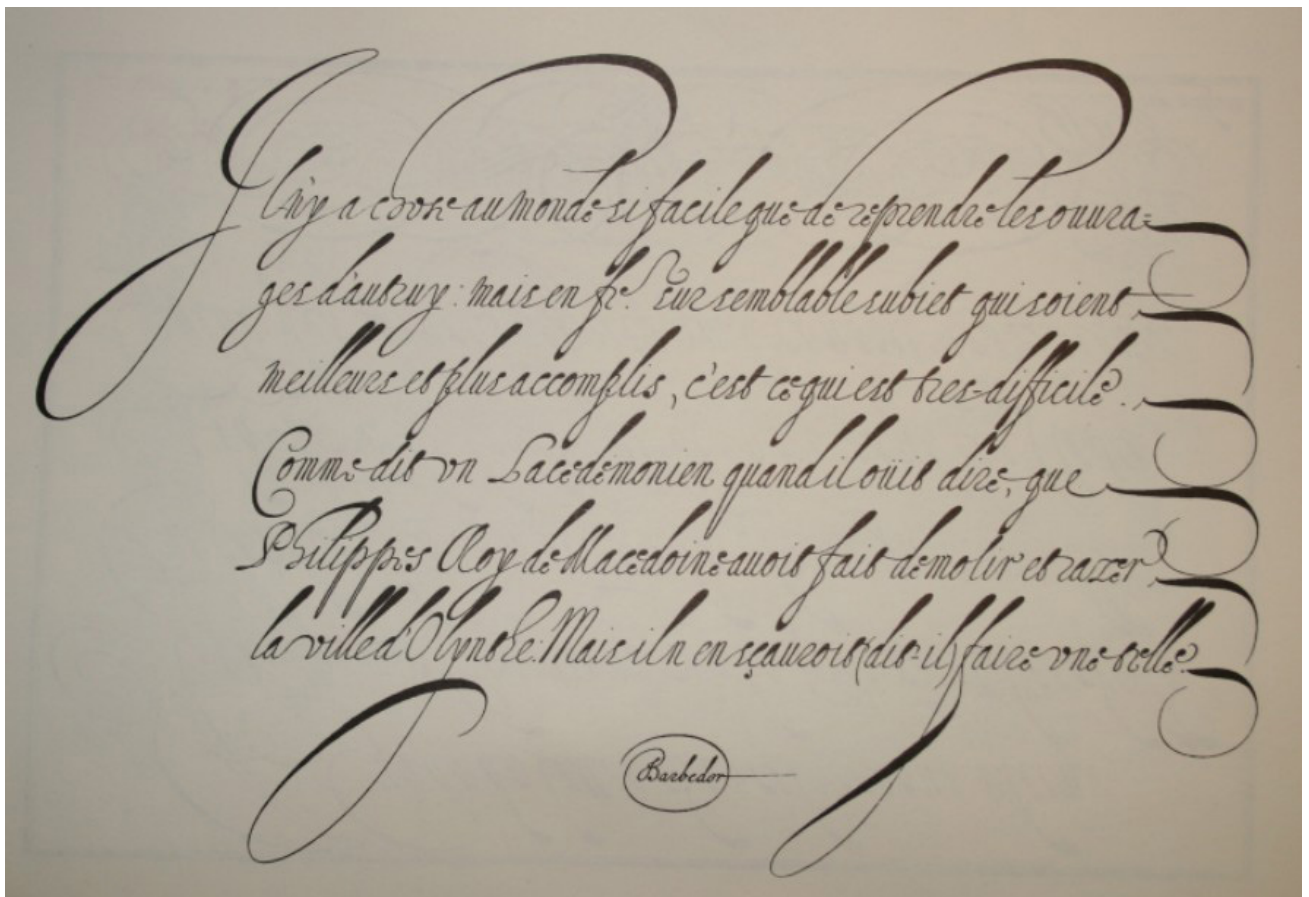 Il n'y a chose au monde si facile que de reprendre les ouura=
ges d'autruy: mais en fre. sur semblable subiet qui soient
meilleurs et plus accomplis, c'est ce qui est tres-difficile.
Comme dit vn Lacedemonien quand il oüit dire, que
Philippes Roy de Macedoine auoit fait demolir et razer
la ville d'Olynthe: Mais il n'en sçauroit (dit-il) faire vne telle.
Barbedor